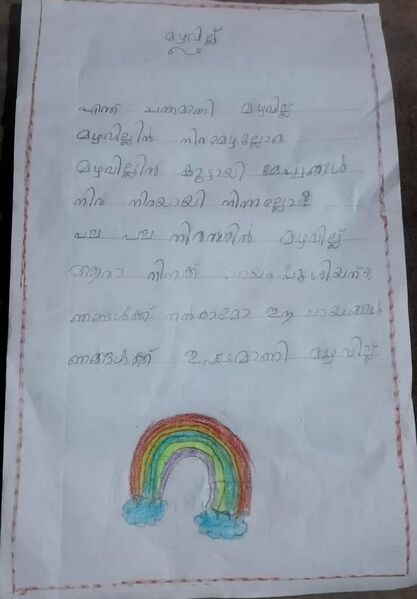 മഴവില്ല്
എന്ത് ചന്തമാണീ മഴവില്ല്
മഴവില്ലിൻ നിറമെഴല്ലോ
മഴവില്ലിൻ കൂട്ടായി മേഘങ്ങൾ
നിര നിരയായി നിന്നല്ലോ
പല പല നിറത്തിൻ മഴവില്ല്
ആരാ നിനക്ക് ചായം പൂശിയത്
ഞങ്ങൾക്ക് നൽകാമോ ഈ ചായങ്ങൾ
ഞങ്ങൾക്ക് ഇഷ്ടമാണീ മഴവില്ല്